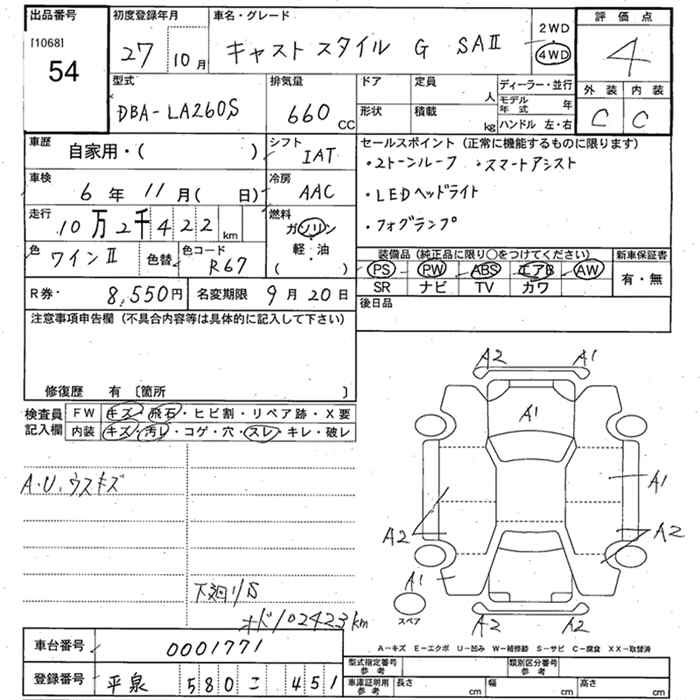 出品番号
[1068]
54
初度登録年月
27 10月
車名・グレード
キャスト スタイル G SAⅡ
2WD
4WD
評価点
4
外装 内装
C C
型式
DBA-LA260S
排気量
660 CC
ドア
定員
人
形状
積載
kg
ディーラー・並行
モデル年式 年
ハンドル 左・右
車歴
自家用・( )
シフト
IAT
車検
6年 11月( 日)
冷房
AAC
走行
10万2千422km
燃料
ガソリン
軽・油
( )
色
ワインⅡ
色替
色コード
R67
セールスポイント(正常に機能するものに限ります)
・2トーンルーフ ・スマートアシスト
・LEDヘッドライト
・フォグランプ
装備品(純正品に限り○をつけてください)
PS PW ABS エアB AW
SR ナビ TV カワ
新車保証書
有・無
R券・ 8,550円
名変期限 9月20日
後日品
注意事項申告欄(不具合内容等は具体的に記入して下さい)
修復歴 有〔箇所 〕
検査員記入欄
FW キズ・飛石・ヒビ割・リペア跡・X要
内装 キズ・汚レ・コゲ・穴・スレ・キレ・破レ
A・U.ウスキズ
下廻りS
オド102423km
A2 A1
A1
A1
A2
A2
A1
A2 A2
スペア
A-キズ E-エクボ U-凹み W-補修跡 S-サビ C-腐食 XX-取替済
車台番号
0001771
登録番号
平泉 580 こ 451
型式指定番号参考
類別区分番号参考
車庫証明用参考
長さ cm
幅 cm
高さ cm